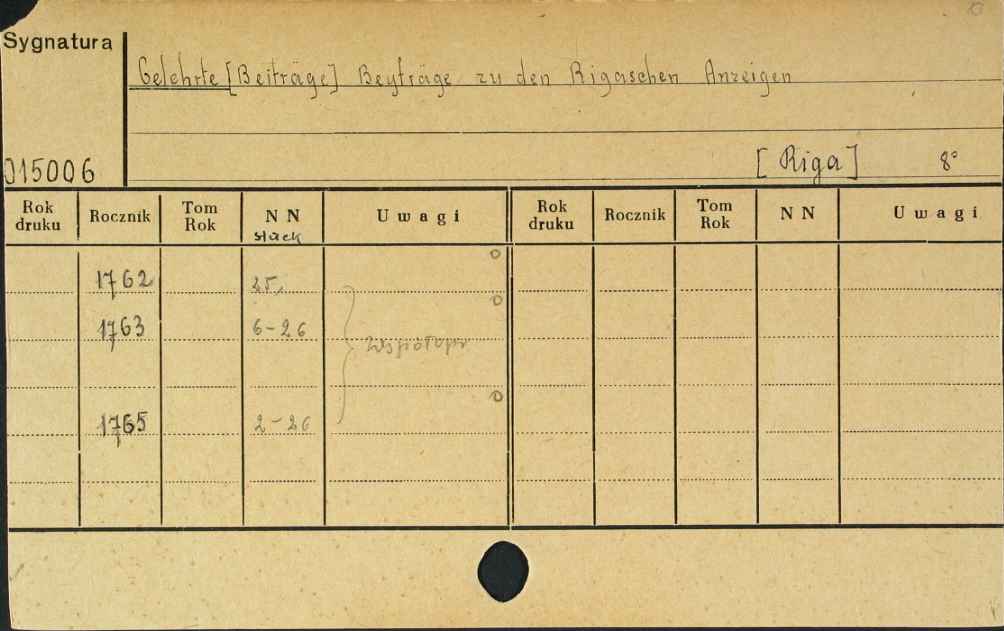 Sygnatura
Gelehrte [Beiträge] Beyträge zu den Rigaschen Anzeigen
015006
[Riga] 8°
Rok druku Rocznik Tom Rok NN Uwagi Rok druku Rocznik Tom Rok NN Uwagi
stück
1762 25,
1763 6-26
współopr
1765 2-26